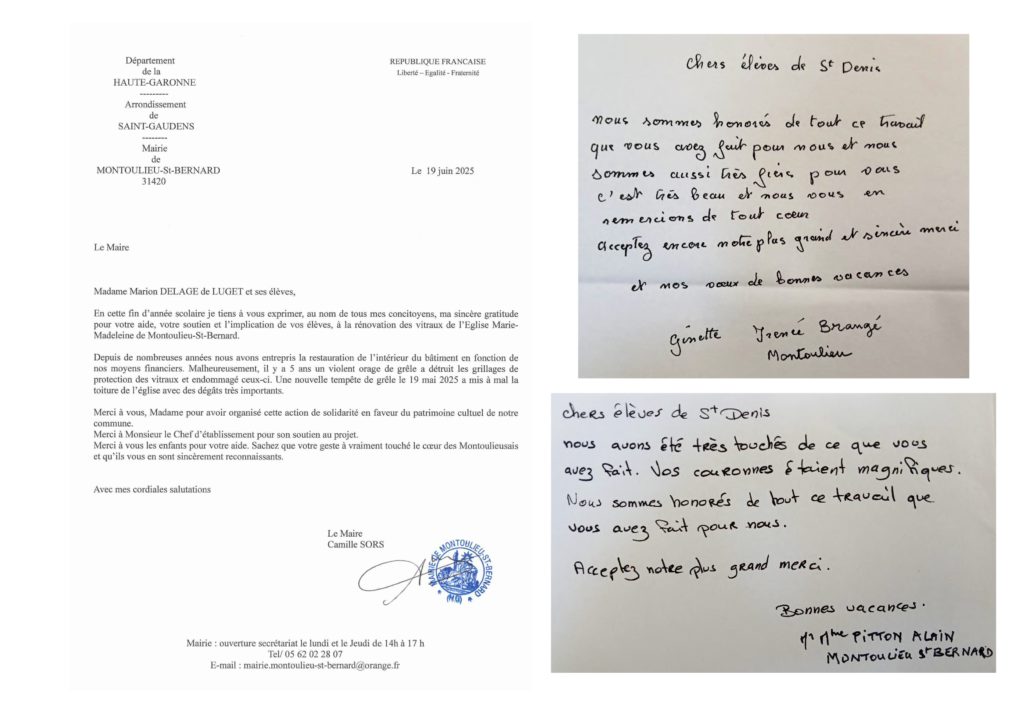 Département
de la
HAUTE-GARONNE
---------
Arrondissement
de
SAINT-GAUDENS
--------
Mairie
de
MONTOULIEU-St-BERNARD
31420
REPUBLIQUE FRANCAISE
Liberté – Egalité - Fraternité
Le 19 juin 2025
Le Maire
Madame Marion DELAGE de LUGET et ses élèves,
En cette fin d'année scolaire je tiens à vous exprimer, au nom de tous mes concitoyens, ma sincère gratitude
pour votre aide, votre soutien et l'implication de vos élèves, à la rénovation des vitraux de l'Eglise Marie-
Madeleine de Montoulieu-St-Bernard.
Depuis de nombreuses années nous avons entrepris la restauration de l'intérieur du bâtiment en fonction de
nos moyens financiers. Malheureusement, il y a 5 ans un violent orage de grêle a détruit les grillages de
protection des vitraux et endommagé ceux-ci. Une nouvelle tempête de grêle le 19 mai 2025 a mis à mal la
toiture de l'église avec des dégâts très importants.
Merci à vous, Madame pour avoir organisé cette action de solidarité en faveur du patrimoine cultuel de notre
commune.
Merci à Monsieur le Chef d'établissement pour son soutien au projet.
Merci à vous les enfants pour votre aide. Sachez que votre geste à vraiment touché le cœur des Montoulieusais
et qu'ils vous en sont sincèrement reconnaissants.
Avec mes cordiales salutations
Le Maire
Camille SORS
MAIRIE DE MONTOULIEU-ST-BERNARD
(HG)
Mairie : ouverture secrétariat le lundi et le Jeudi de 14h à 17 h
Tel/ 05 62 02 28 07
E-mail : mairie.montoulieu-st-bernard@orange.fr
Chers élèves de St Denis
nous sommes honorés de tout ce travail
que vous avez fait pour nous et nous
sommes aussi très fiers pour vous
c'est très beau et nous vous en
remercions de tout cœur
Acceptez encore notre plus grand et sincère merci
et nos vœux de bonnes vacances
Ginette Irenée Brangé
Montoulieu
chers élèves de St Denis
nous avons été très touchés de ce que vous
avez fait. Vos couronnes étaient magnifiques.
Nous sommes honorés de tout ce travail que
vous avez fait pour nous.
Acceptez notre plus grand merci.
Bonnes vacances.
Mr Mme PITTON ALAIN
MONTOULIEU St BERNARD